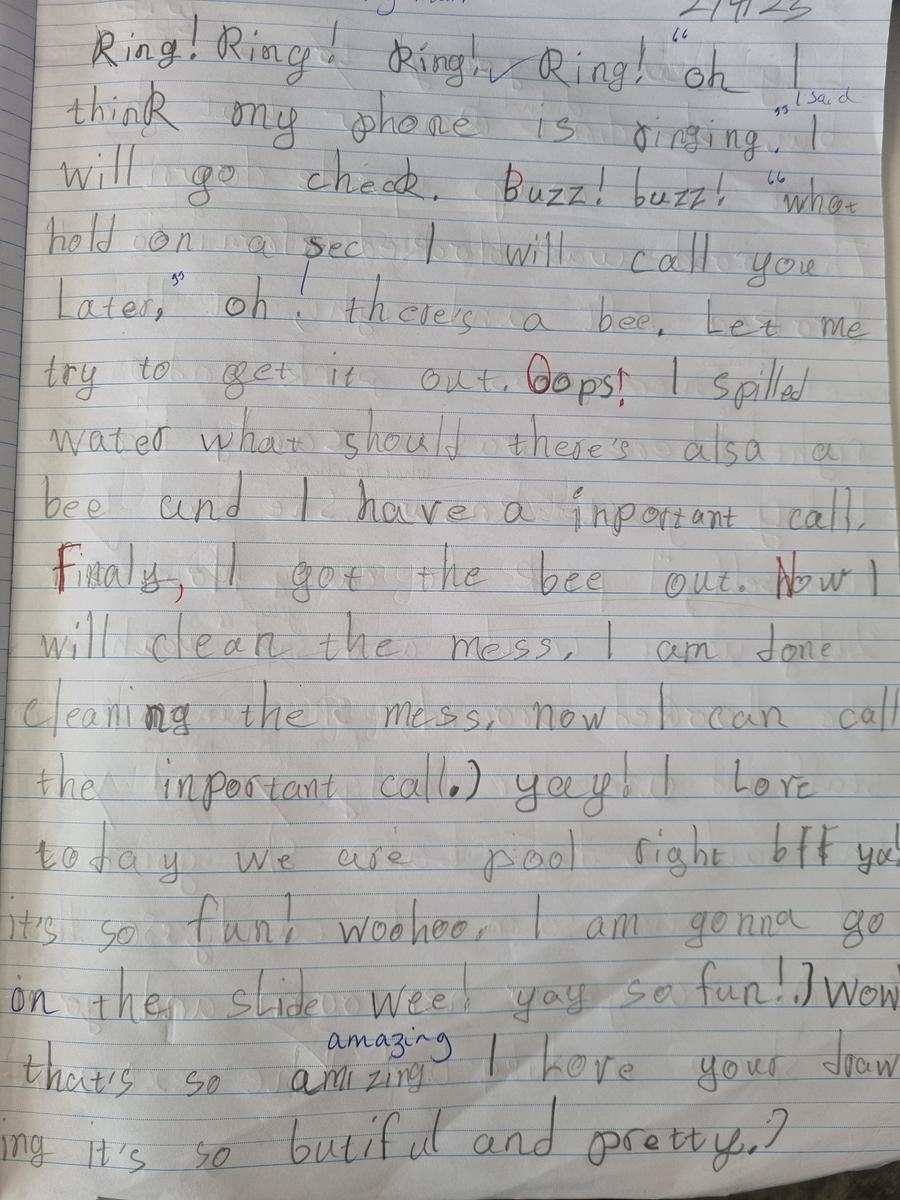 2/4/23
Ring! Ring! Ring! Ring! "oh I
I said
think my phone is ringing." I
will go check. Buzz! buzz! "what
hold on a sec I will call you
Later," oh! there's a bee. Let me
try to get it out. Oops! I spilled
water what should there's alsa a
bee and I have a inportant call.
Finaly, I got the bee out. Now I
will clean the mess, I am done
cleaning the mess, now I can call
the inportant call.) yay! I Love
today we are pool right bff ya!
it's so fun! woohoo, I am gonna go
on the slide wee! yay so fun!.) Wow
amazing
that's so amizing I Love your draw
ing it's so butiful and pretty.)